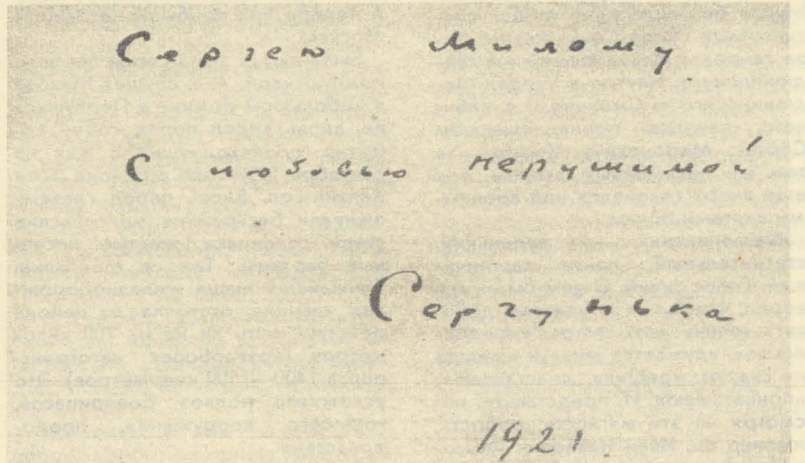 Сергею Милому
С любовью нерушимой
Сергунька
1921